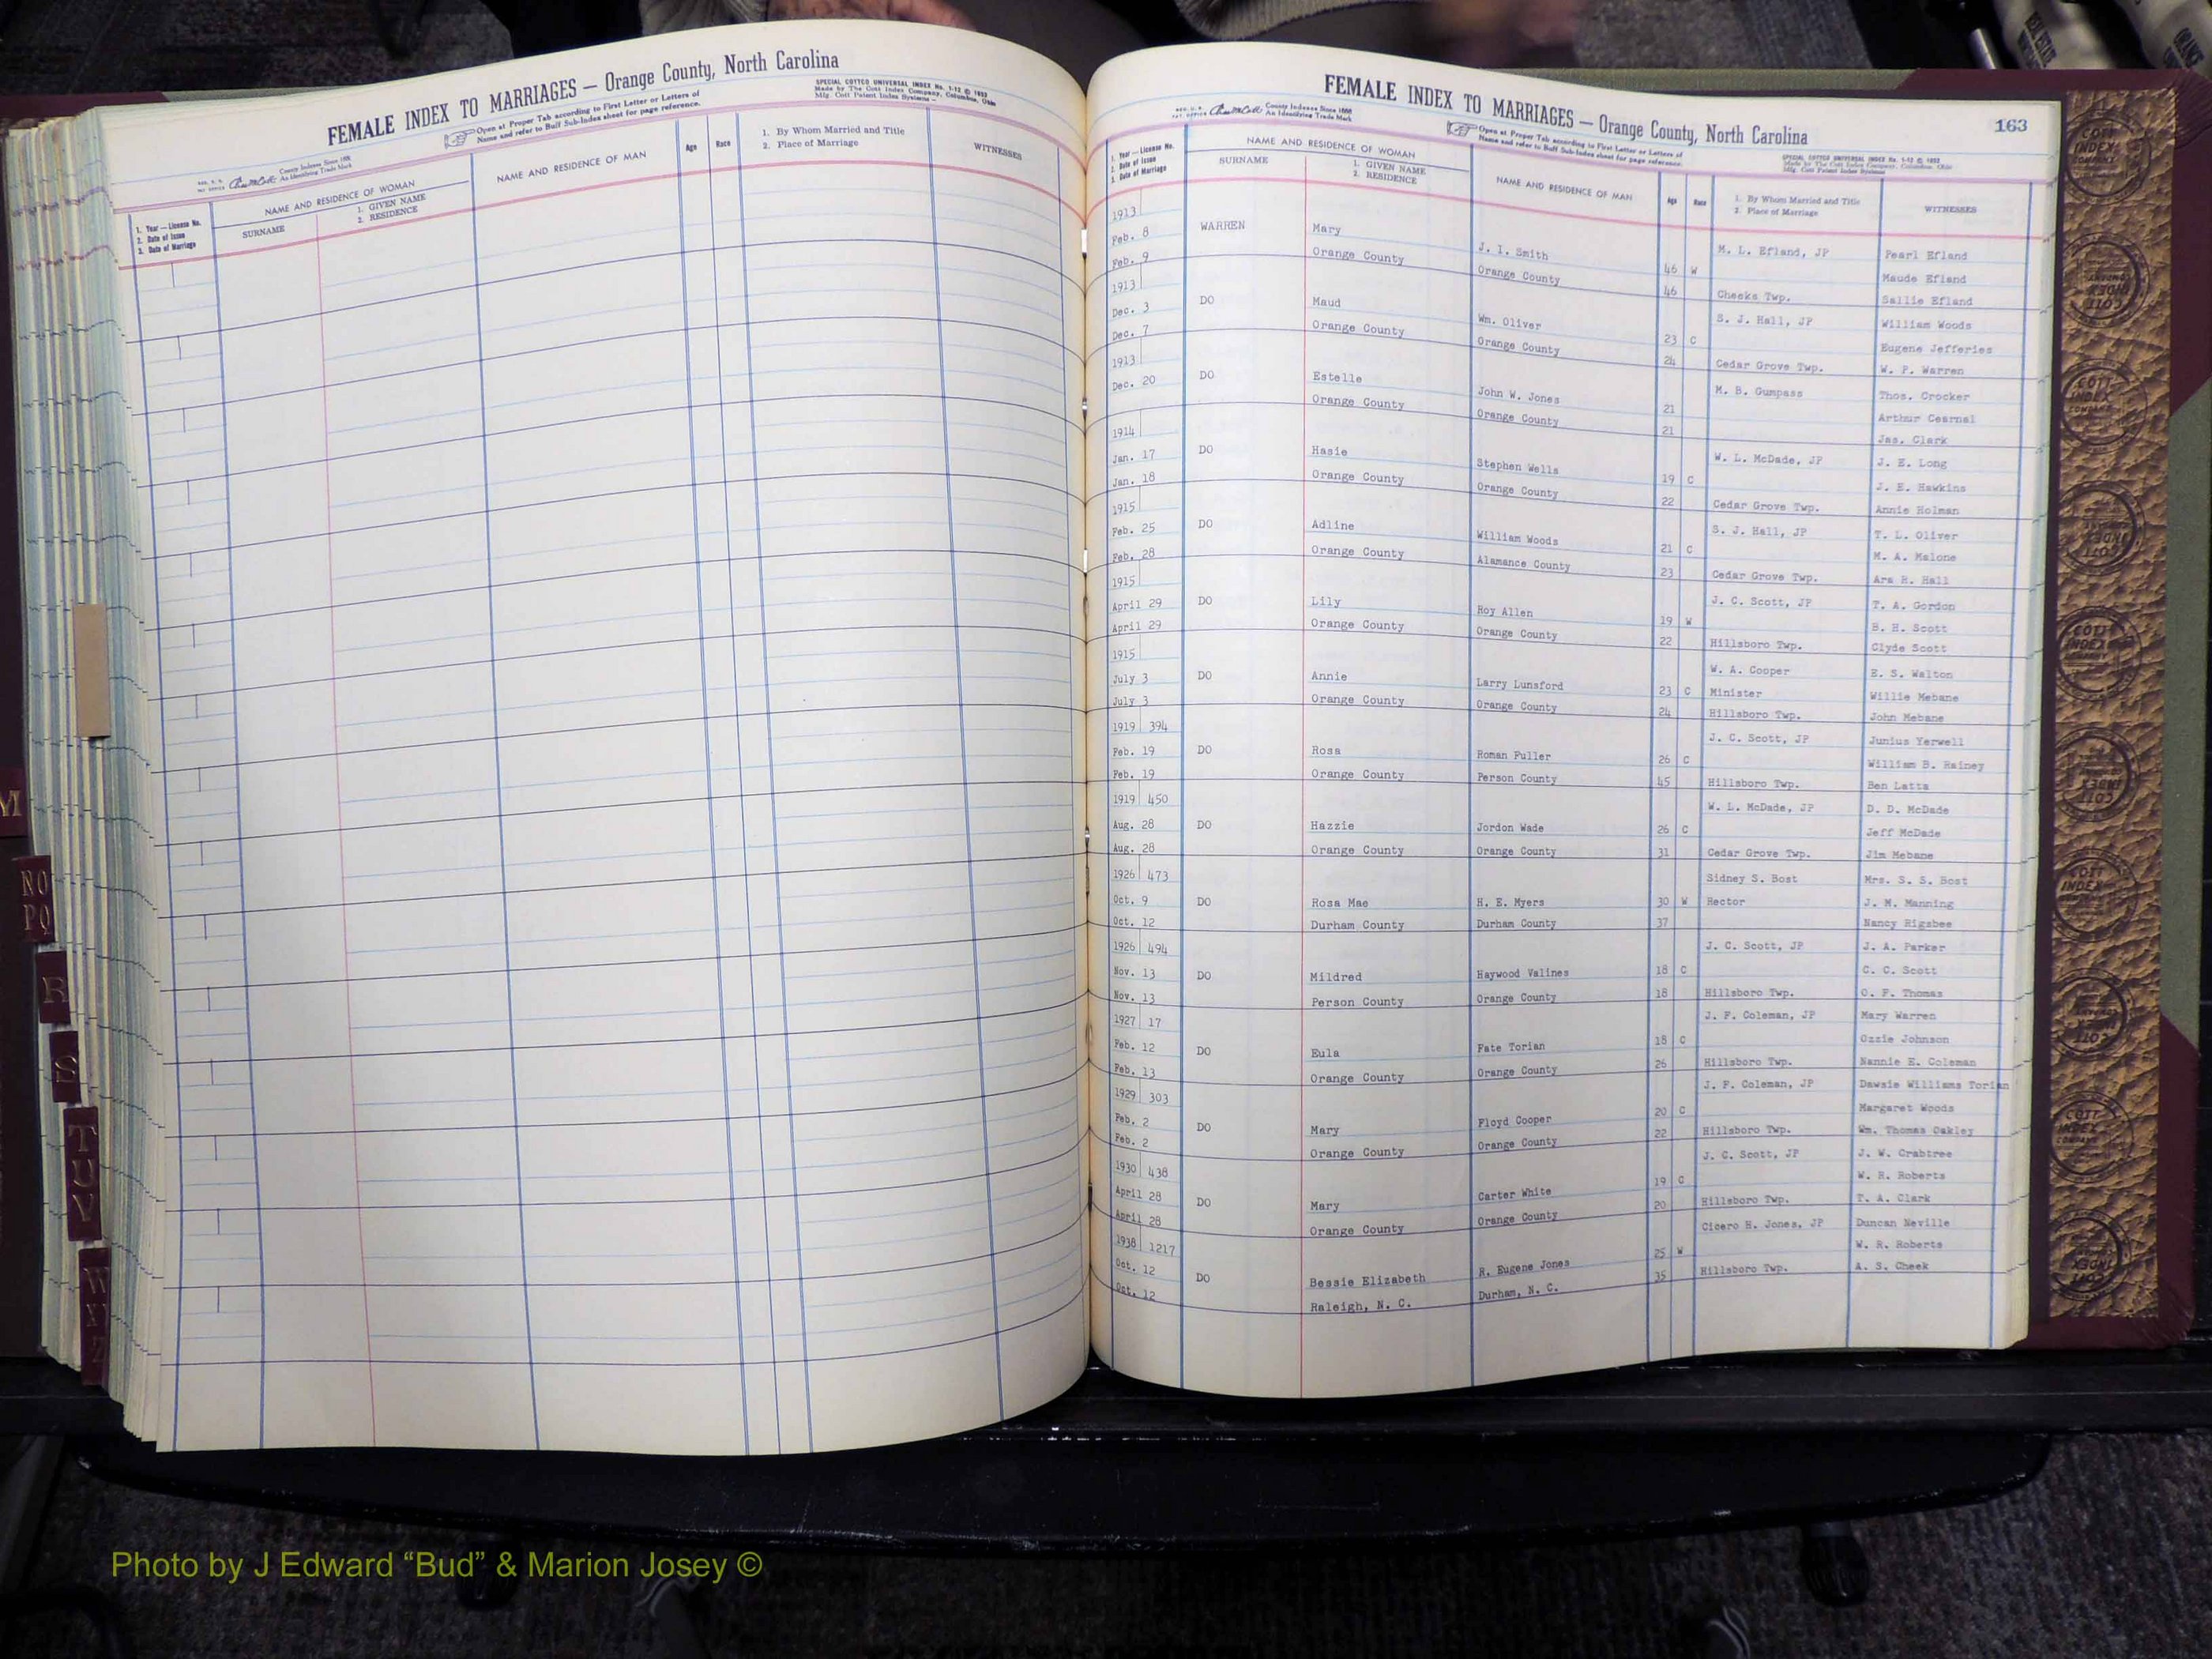 FEMALE INDEX TO MARRIAGES — Orange County, North Carolina
Open at Proper Tab according to First Letter or Letters of
Name and refer to Buff Sub-Index sheet for page reference.
SPECIAL COTTCO UNIVERSAL INDEX No. 1-12 © 1952
Made by The Cott Index Company, Columbus, Ohio
County Indexes Since 1888
An Identifying Trade Mark
1. Year — License No.
2. Date of Issue
3. Date of Marriage
NAME AND RESIDENCE OF WOMAN
SURNAME
1. GIVEN NAME
2. RESIDENCE
NAME AND RESIDENCE OF MAN
Age
Race
1. By Whom Married and Title
2. Place of Marriage
WITNESSES
FEMALE INDEX TO MARRIAGES — Orange County, North Carolina
163
County Indexes Since 1888
An Identifying Trade Mark
Open at Proper Tab according to First Letter or Letters of
Name and refer to Buff Sub-Index sheet for page reference.
1. Year — License No.
2. Date of Issue
3. Date of Marriage
NAME AND RESIDENCE OF WOMAN
SURNAME
1. GIVEN NAME
2. RESIDENCE
NAME AND RESIDENCE OF MAN
Age
Race
1. By Whom Married and Title
2. Place of Marriage
WITNESSES
1913 M. L. Efland, JP Pearl Efland
Feb. 8 WARREN Mary J. I. Smith 46 W Maude Efland
Feb. 9 Orange County Orange County 46 Cheeks Twp. Sallie Efland
1913 S. J. Hall, JP William Woods
Dec. 3 DO Maud Wm. Oliver 23 C Eugene Jefferies
Dec. 7 Orange County Orange County 24 Cedar Grove Twp. W. P. Warren
1913 M. B. Gumpass Thos. Crocker
Dec. 20 DO Estelle John W. Jones 21 Arthur Cearnal
Orange County Orange County 21 Jas. Clark
1914 W. L. McDade, JP J. E. Long
Jan. 17 DO Hasie Stephen Wells 19 C J. E. Hawkins
Jan. 18 Orange County Orange County 22 Cedar Grove Twp. Annie Holman
1915 S. J. Hall, JP T. L. Oliver
Feb. 25 DO Adline William Woods 21 C M. A. Malone
Feb. 28 Orange County Alamance County 23 Cedar Grove Twp. Ara R. Hall
1915 J. C. Scott, JP T. A. Gordon
April 29 DO Lily Roy Allen 19 W B. H. Scott
April 29 Orange County Orange County 22 Hillsboro Twp. Clyde Scott
1915 W. A. Cooper E. S. Walton
July 3 DO Annie Larry Lunsford 23 C Minister Willie Mebane
July 3 Orange County Orange County 24 Hillsboro Twp. John Mebane
1919 394 J. C. Scott, JP Junius Yerwell
Feb. 19 DO Rosa Roman Fuller 26 C William B. Rainey
Feb. 19 Orange County Person County 45 Hillsboro Twp. Ben Latta
1919 450 W. L. McDade, JP D. D. McDade
Aug. 28 DO Hazzie Jordon Wade 26 C Jeff McDade
Aug. 28 Orange County Orange County 31 Cedar Grove Twp. Jim Mebane
1926 473 Sidney S. Bost Mrs. S. S. Bost
Oct. 9 DO Rosa Mae H. E. Myers 30 W Rector J. M. Manning
Oct. 12 Durham County Durham County 37 Nancy Rigsbee
1926 494 J. C. Scott, JP J. A. Parker
Nov. 13 DO Mildred Haywood Valines 18 C C. C. Scott
Nov. 13 Person County Orange County 18 Hillsboro Twp. O. F. Thomas
1927 17 J. F. Coleman, JP Mary Warren
Feb. 12 DO Eula Fate Torian 18 C Ozzie Johnson
Feb. 13 Orange County Orange County 26 Hillsboro Twp. Nannie E. Coleman
1929 303 J. F. Coleman, JP Dawsie Williams Torian
Feb. 2 DO Mary Floyd Cooper 20 C Margaret Woods
Feb. 2 Orange County Orange County 22 Hillsboro Twp. Wm. Thomas Oakley
1930 438 J. C. Scott, JP J. W. Crabtree
April 28 DO Mary Carter White 19 C W. R. Roberts
April 28 Orange County Orange County 20 Hillsboro Twp. T. A. Clark
1938 1217 Cicero H. Jones, JP Duncan Neville
Oct. 12 DO Bessie Elizabeth R. Eugene Jones 25 W W. R. Roberts
Oct. 12 Raleigh, N. C. Durham, N. C. 35 Hillsboro Twp. A. S. Cheek
M
NO
PQ
R
S
T
U
V
W
Photo by J Edward “Bud” & Marion Josey ©